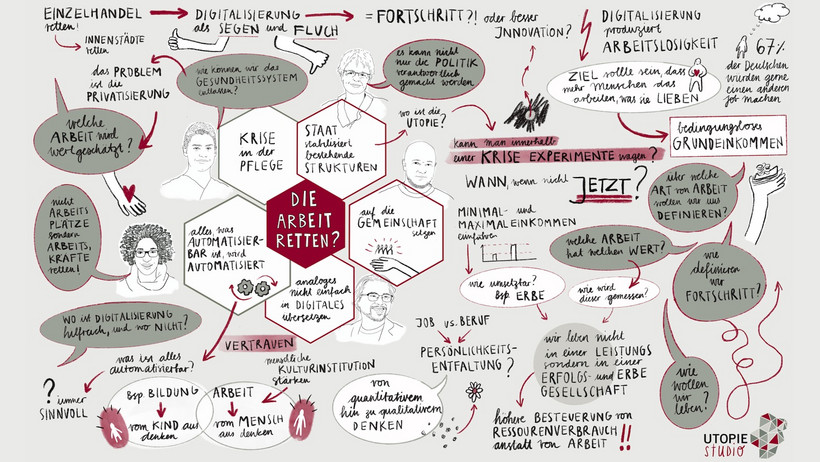 EINZELHANDEL
retten!
INNENSTÄDTE
retten
das PROBLEM
ist die
PRIVATISIERUNG
DIGITALISIERUNG
als SEGEN und FLUCH
= FORTSCHRITT?! oder besser
INNOVATION?
DIGITALISIERUNG
produziert
ARBEITSLOSIGKEIT
67%
der Deutschen
würden gerne
einen anderen
job machen
ZIEL sollte sein, dass
mehr Menschen das
arbeiten, was sie LIEBEN
bedingungsloses
GRUNDEINKOMMEN
wie können wir das
GESUNDHEITSSYSTEM
entlasten?
es kann nicht
nur die POLITIK
verantwortlich
gemacht werden
welche
ARBEIT wird
wertgeschätzt?
KRISE
in der
PFLEGE
STAAT
stabilisiert
bestehende
STRUKTUREN
wo ist die
UTOPIE?
kann man innerhalb
einer KRISE EXPERIMENTE wagen?
WANN, wenn nicht JETZT?
über welche
ART von ARBEIT
wollen wir uns
DEFINIEREN?
DIE
ARBEIT
RETTEN?
auf die
GEMEINSCHAFT
setzen
MINIMAL- und
MAXIMALEINKOMMEN
einführen
nicht
ARBEITS
PLÄTZE
sondern
ARBEITS,
KRÄFTE
retten!
alles, was
AUTOMATISIER-
BAR ist, wird
AUTOMATISIERT
analoges
nicht einfach
in DIGITALES
übersetzen
welche ARBEIT
hat welchen WERT?
wie
definieren
wir
FORTSCHRITT?
wie umsetzbar?
Bsp ERBE
wie wird
dieser gemessen?
WO IST DIGITALISIERUNG
hilfreich, und wo NICHT?
was ist alles
automatisierbar?
? immer
SINNVOLL
VERTRAUEN
menschliche
KULTURINSTITUTION
stärken
JOB vs. BERUF
PERSÖNLICHKEITS-
ENTFALTUNG?
wir leben nicht
in einer LEISTUNGS
sondern in einer
ERFOLGS- und ERBE
GESELLSCHAFT
wie
wollen
wir
leben?
Bsp BILDUNG
vom KIND aus
denken
ARBEIT
vom MENSCH
aus denken
von
quantitativem
hin zu qualitativem
DENKEN
höhere BESTEUERUNG von
RESSOURENVERBRAUCH
anstatt von ARBEIT !!
UTOPIE
STUDIO